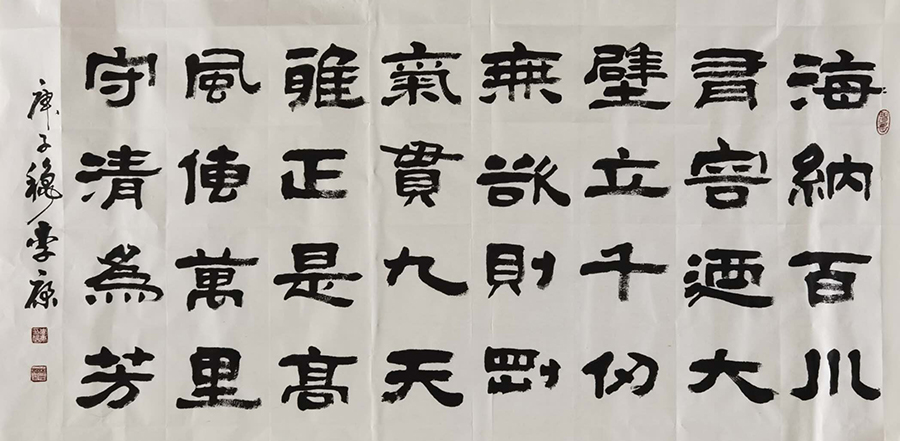 海納百川
有容迺大
壁立千仞
無欲則剛
氣貫九天
唯正是高
風傳萬里
守清為芳
庚子穐李